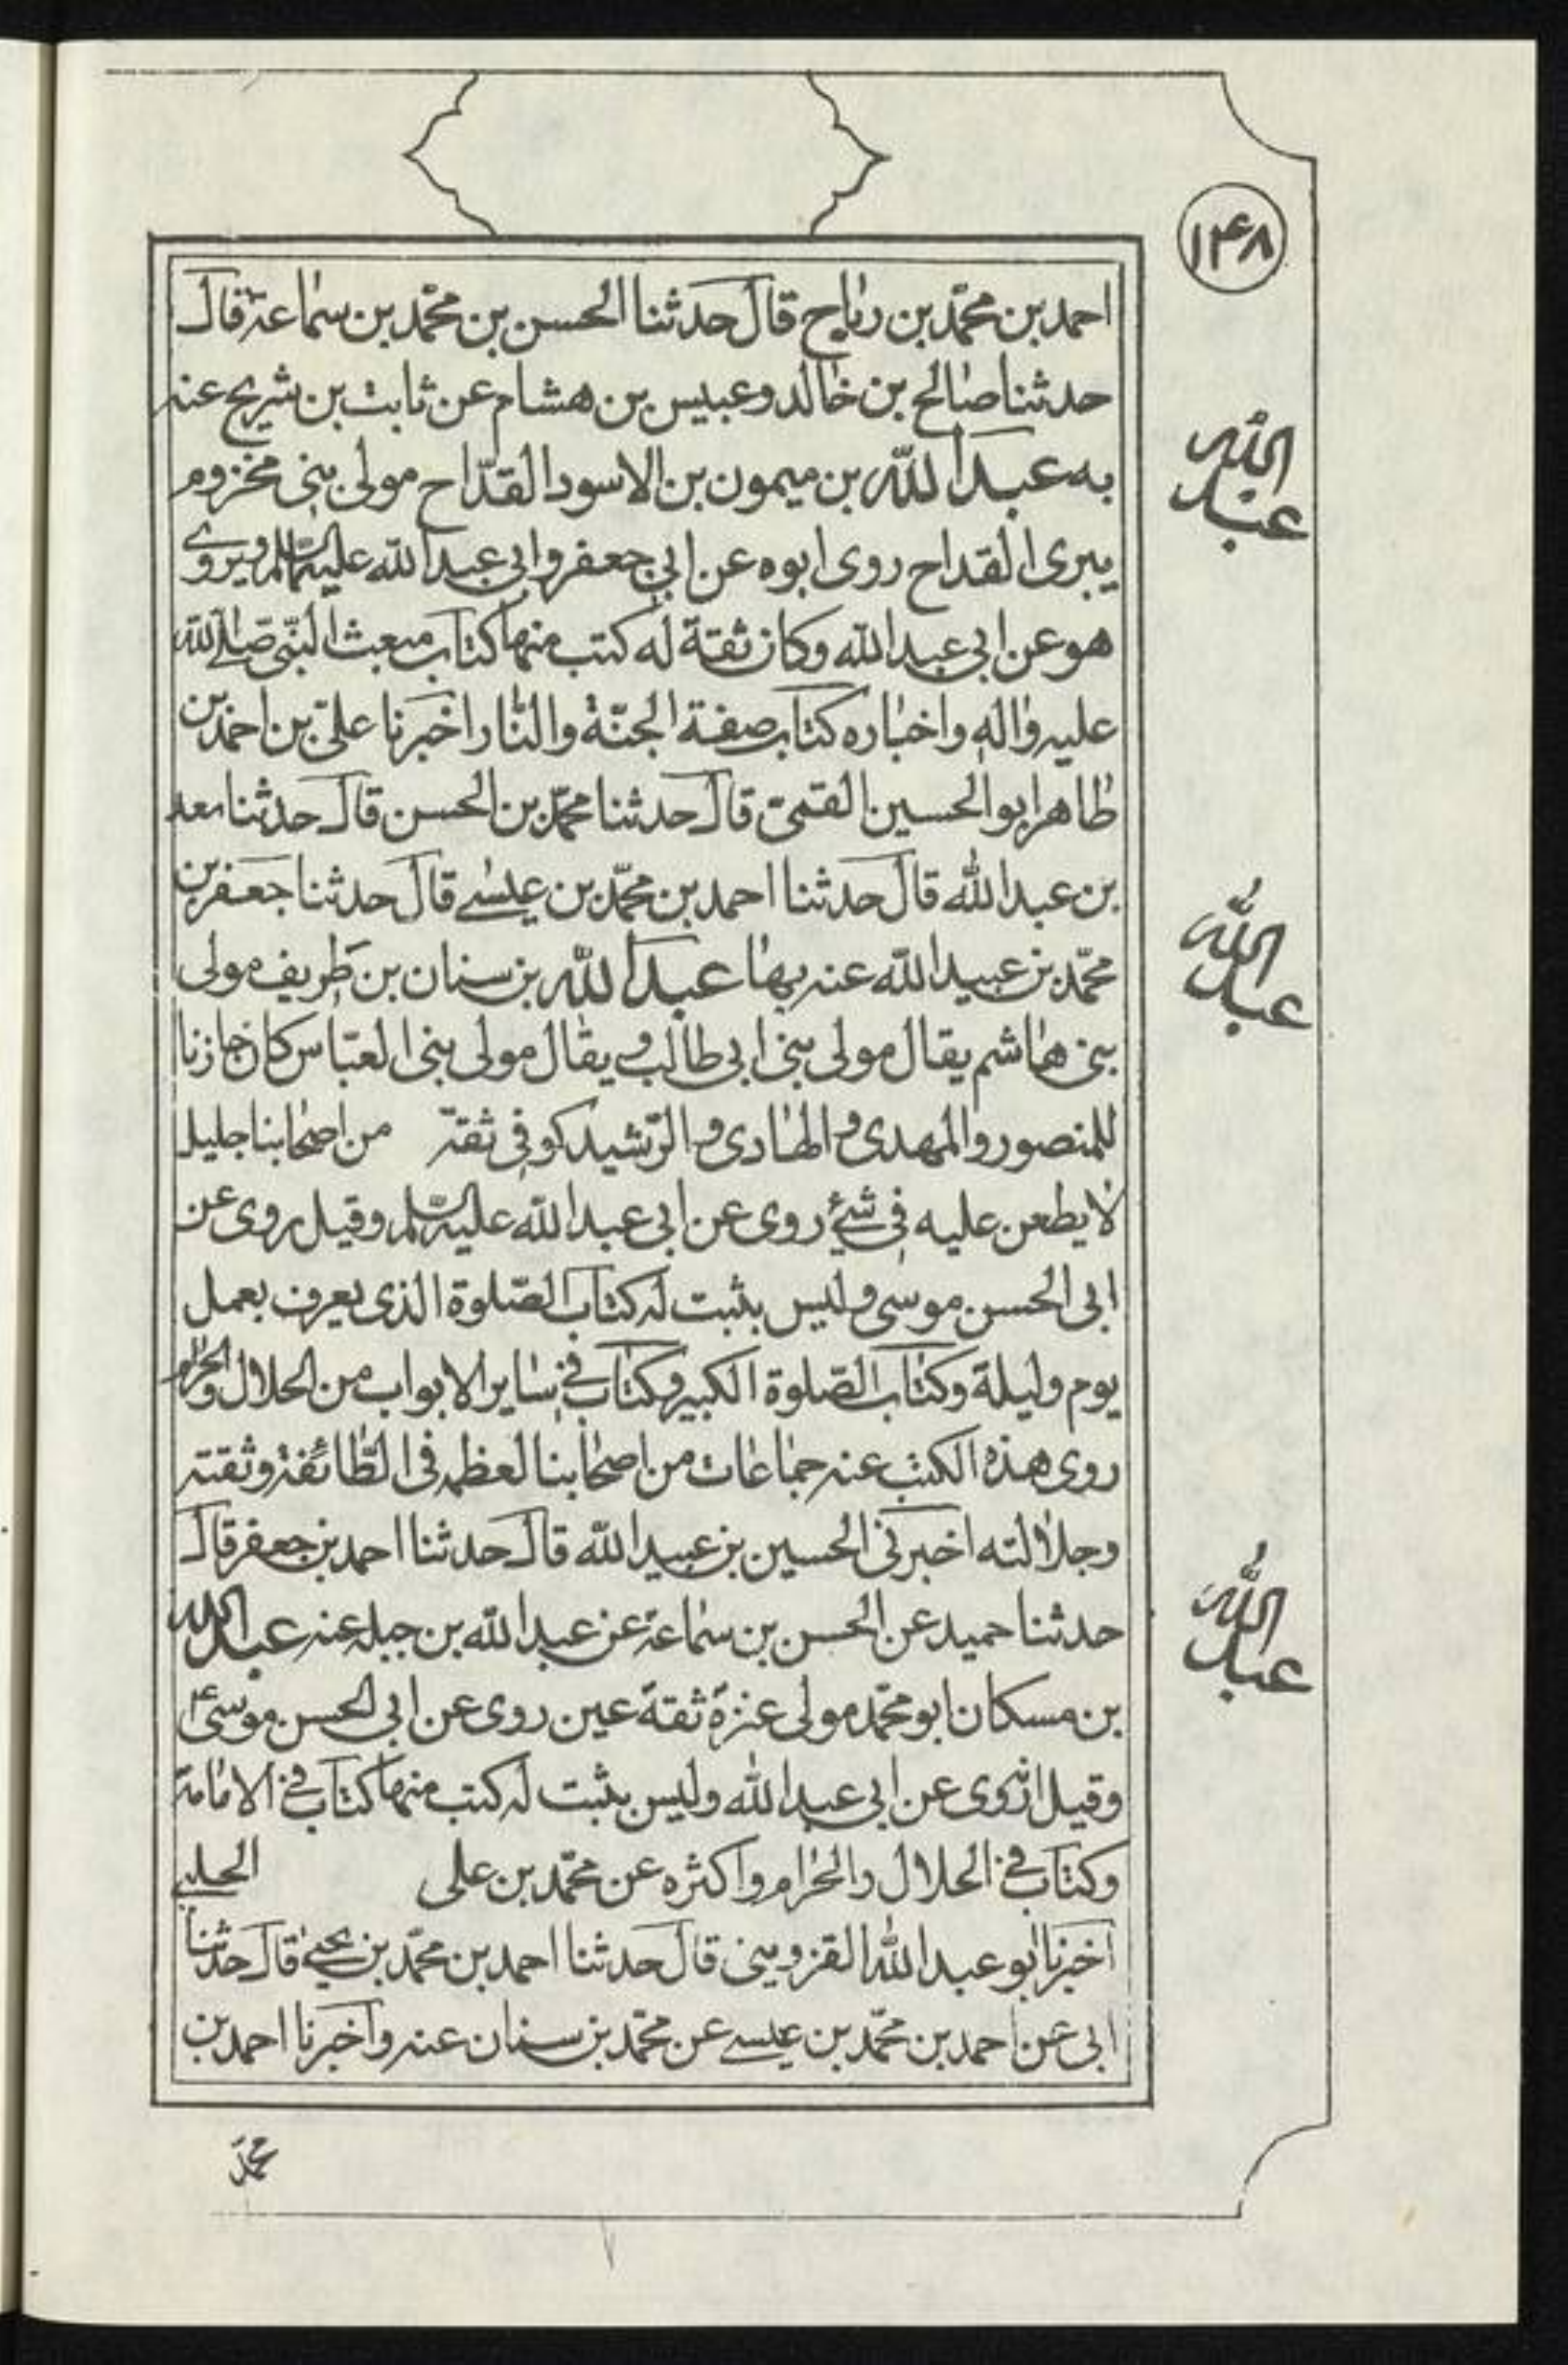 ١٤٨
احمد بن محمّد بن رباح قال حدثنا الحسن بن محمّد بن سماعة قال
حدثنا صالح بن خالد وعبيس بن هشام عن ثابت بن شريح عنه
به عبد اللّه بن ميمون بن الاسود القدّاح مولى بنى مخزوم
يبرى القداح روى ابوه عن ابي جعفر وابي عبد الله عليهما السّلم ويروى
هو عن ابي عبد الله وكان ثقة له كتب منها كتاب مبعث النّبى صلى الله
عليه واله واخباره كتاب صفة الجنّة والنّار اخبرنا علىّ بن احمد بن
طاهر ابو الحسين القمىّ قال حدثنا محمّد بن الحسن قال حدثنا سعد
بن عبد الله قال حدثنا احمد بن محمّد بن عيسى قال حدثنا جعفر بن
محمّد بن عبيد اللّه عنه بها عبد اللّه بن سنان بن طريف مولى
بنى هاشم يقال مولى بنى ابى طالب ويقال مولى بنى العبّاس كان خازنا
للمنصور والمهدى والهادى والرّشيد كوفى ثقة من اصحابنا جليل
لا يطعن عليه فى شئ روى عن ابى عبد الله عليه السّلم وقيل روى عن
ابى الحسن موسى وليس بثبت له كتاب الصّلوة الذى يعرف بعمل
يوم وليلة وكتاب الصّلوة الكبير وكتاب فى ساير الابواب من الحلال والحرام
روى هذه الكتب عنه جماعات من اصحابنا لعظمه فى الطّائفة وثقته
وجلالته اخبرنى الحسين بن عبيد اللّه قال حدثنا احمد بن جعفر قال
حدثنا حميد عن الحسن بن سماعة عن عبد اللّه بن جبله عنه عبد الله
بن مسكان ابو محمّد مولى عنزة ثقة عين روى عن ابى الحسن موسى ع
وقيل انه روى عن ابى عبد الله وليس بثبت له كتب منها كتاب فى الامامة
وكتاب فى الحلال والحرام واكثره عن محمّد بن على الحلبى
اخبرنا ابو عبد الله القزوينى قال حدثنا احمد بن محمّد بن يحيى قال حدثنا
ابى عن احمد بن محمّد بن عيسى عن محمّد بن سنان عنه واخبرنا احمد بن
محمّد
عبد الله
عبد الله
عبد الله